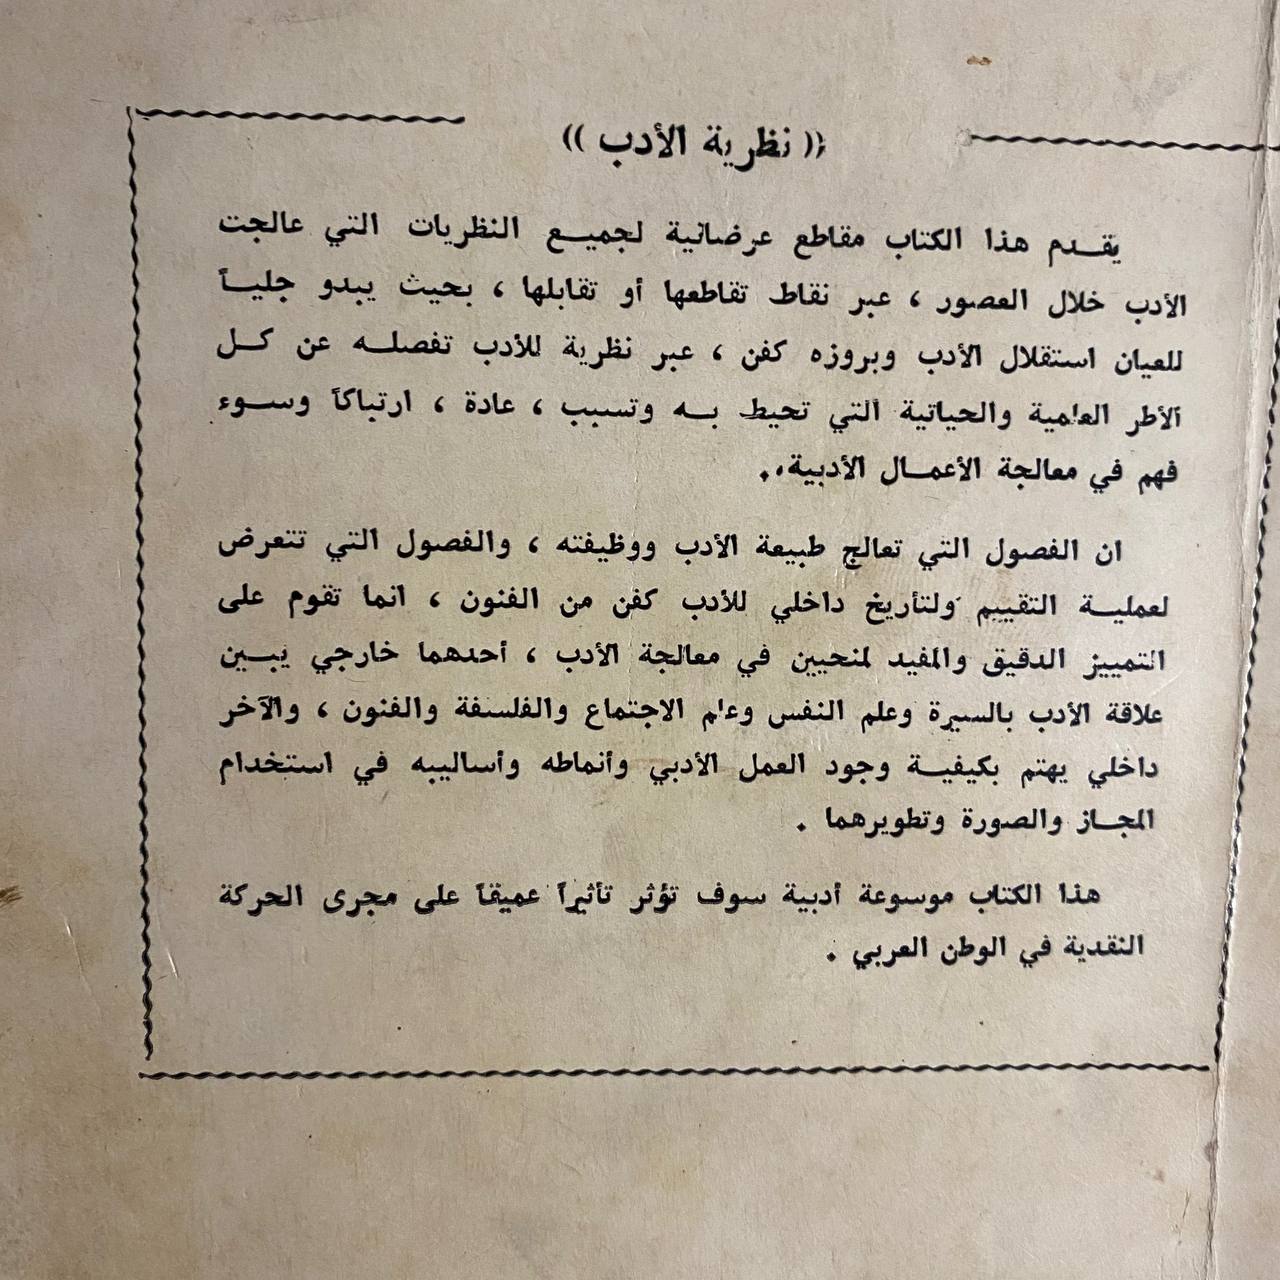 (( نظرية الأدب ))
يقدم هذا الكتاب مقاطع عرضانية لجميع النظريات التي عالجت
الأدب خلال العصور ، عبر نقاط تقاطعها أو تقابلها ، بحيث يبدو جلياً
للعيان استقلال الأدب وبروزه كفن ، عبر نظرية للأدب تفصله عن كل
الأطر العلمية والحياتية التي تحيط به وتسبب ، عادة ، ارتباكاً وسوء
فهم في معالجة الأعمال الأدبية .
ان الفصول التي تعالج طبيعة الأدب ووظيفته ، والفصول التي تتعرض
لعملية التقييم ولتأريخ داخلي للأدب كفن من الفنون ، انما تقوم على
التمييز الدقيق والمفيد لمنحيين في معالجة الأدب ، أحدهما خارجي يبين
علاقة الأدب بالسيرة وعلم النفس وعلم الاجتماع والفلسفة والفنون ، والآخر
داخلي يهتم بكيفية وجود العمل الأدبي وأنماطه وأساليبه في استخدام
المجاز والصورة وتطويرهما .
هذا الكتاب موسوعة أدبية سوف تؤثر تأثيراً عميقاً على مجرى الحركة
النقدية في الوطن العربي .